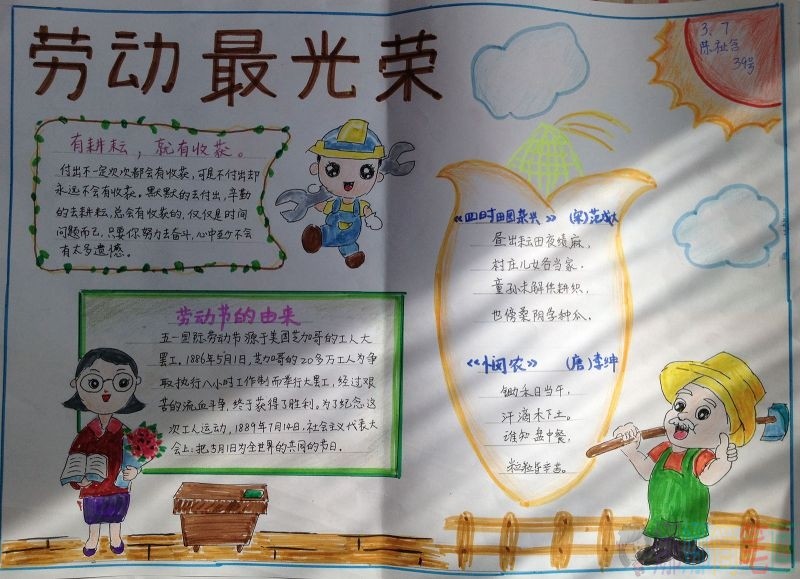 劳动最光荣
3、7
39号
有耕耘，就有收获。
付出不一定次次都会有收获，可是不付出却
永远不会有收获。默默的去付出，辛勤
的去耕耘，总会有收获的，仅仅是时间
问题而已，只要你努力去奋斗，心中至少不会
有太多遗憾。
劳动节的由来
五一国际劳动节源于美国芝加哥的工人大
罢工。1886年5月1日，芝加哥的20多万工人为争
取执行八小时工作制而举行大罢工，经过艰
苦的流血斗争，终于获得了胜利。为了纪念这
次工人运动，1889年7月14日，社会主义代表大
会上：把5月1日为全世界的共同的节日。
《四时田园杂兴》 (宋)范成大
昼出耘田夜绩麻，
村庄儿女各当家。
童孙未解供耕织，
也傍桑阴学种瓜。
《悯农》 (唐)李绅
锄禾日当午，
汗滴木下土。
谁知盘中餐，
粒粒皆辛苦。